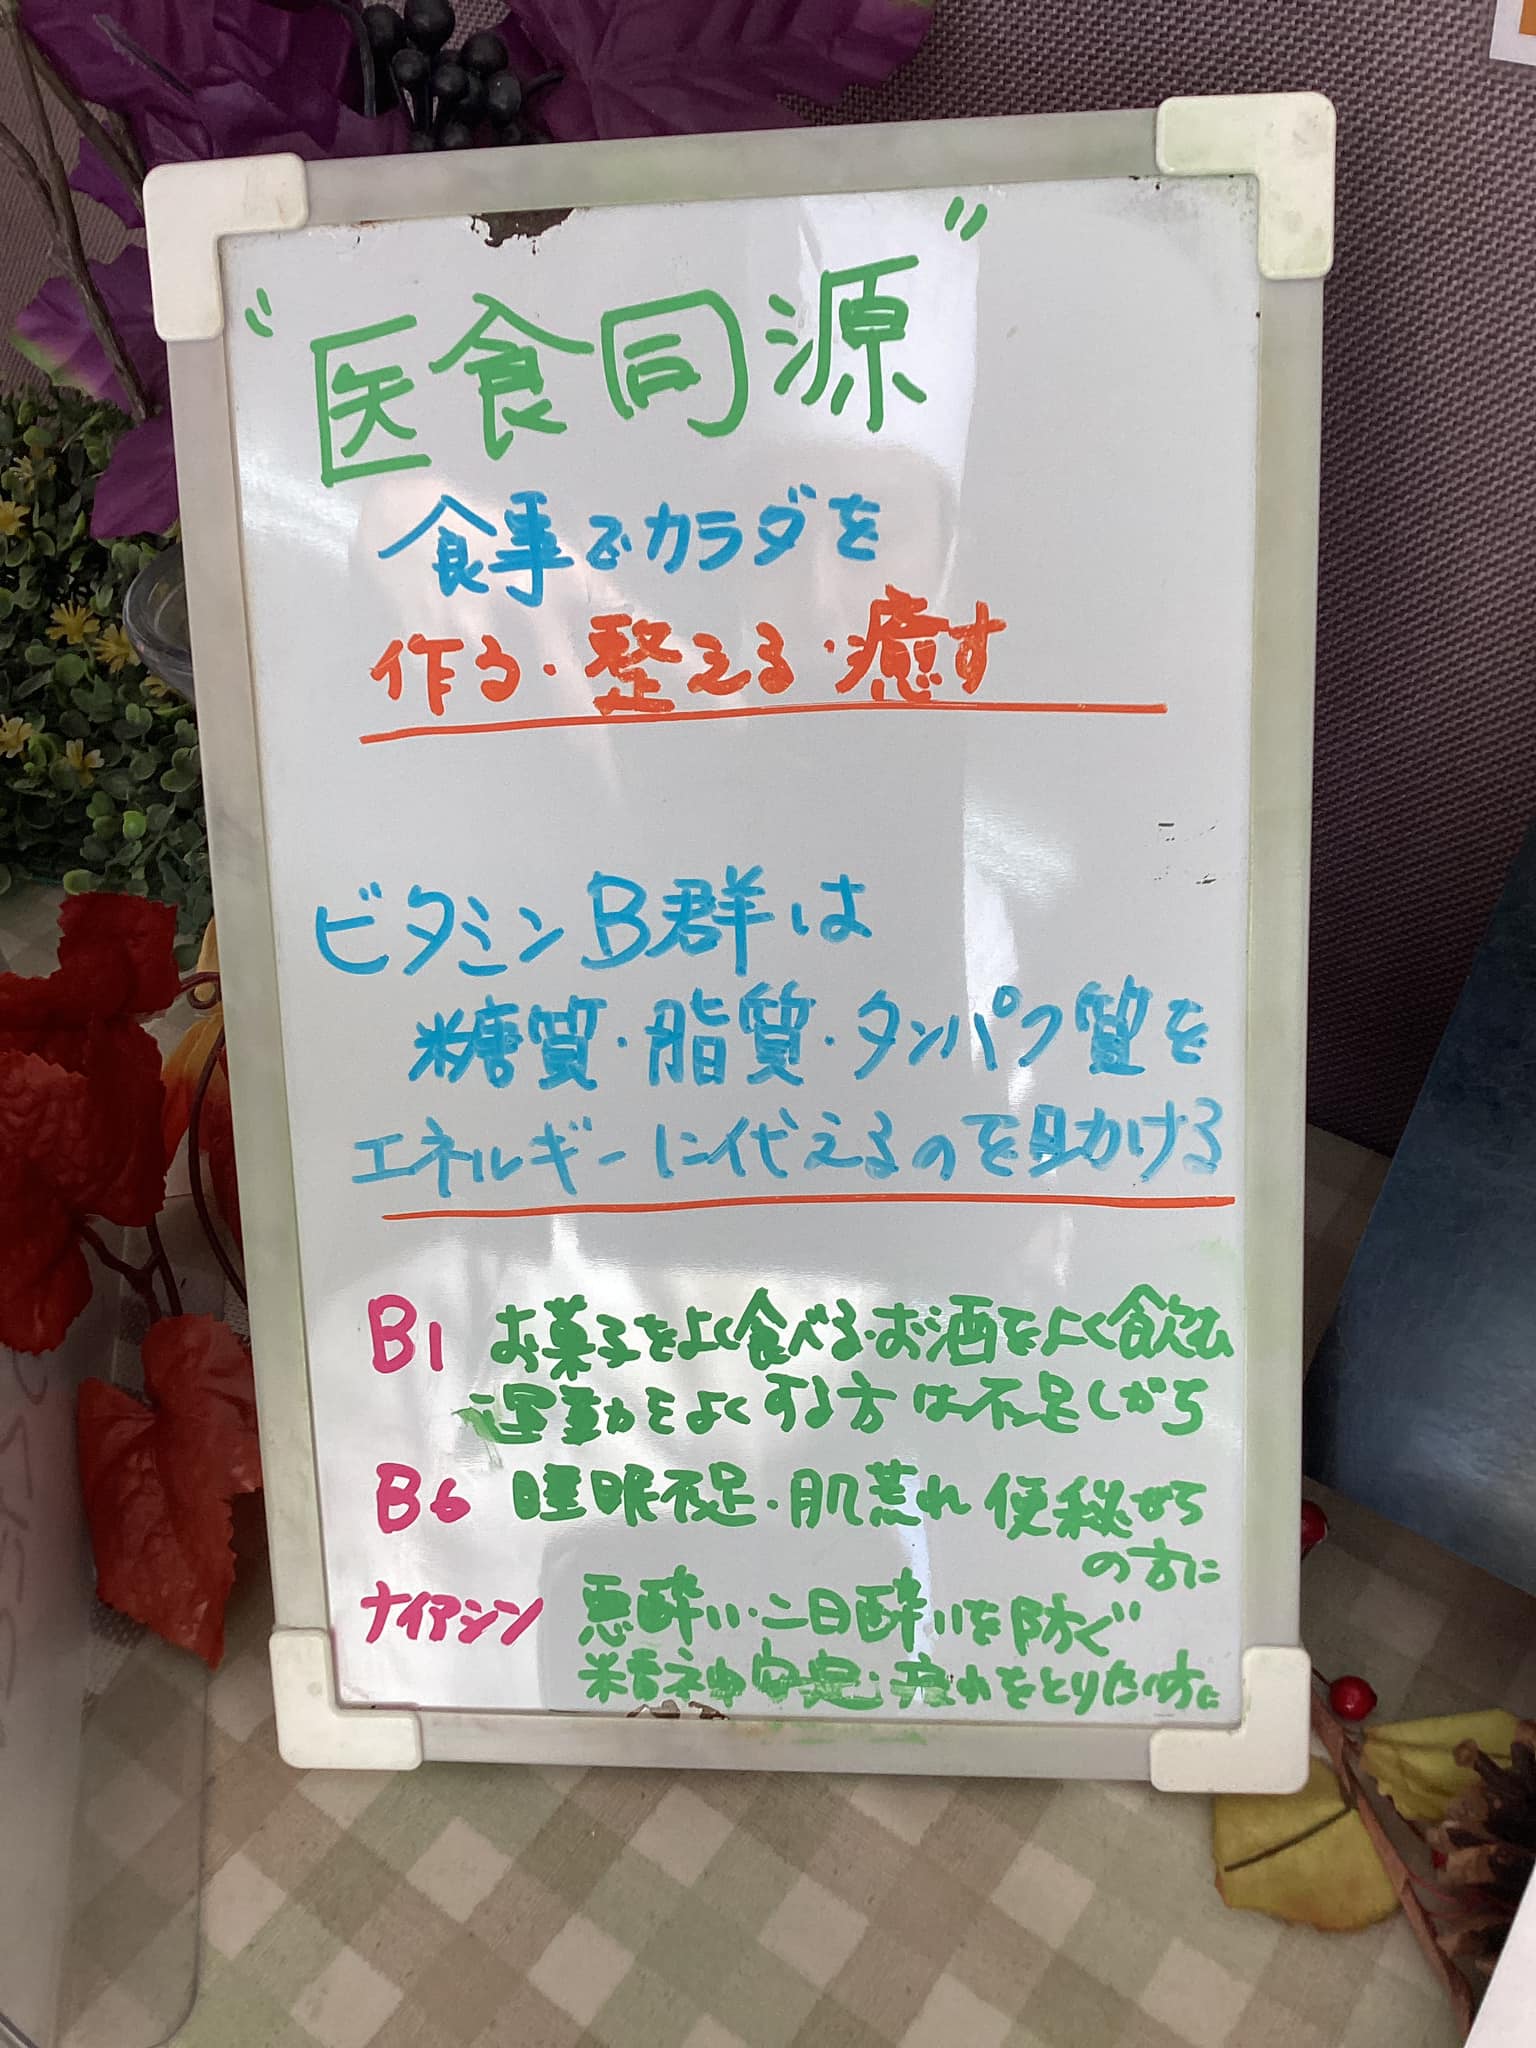 “医食同源”
食事でカラダを
作る・整える・癒す
ビタミンB群は
糖質・脂質・タンパク質を
エネルギーに代えるのを助ける
B1 お菓子をよく食べる・お酒をよく飲む
運動をよくする方は不足しがち
B6 睡眠不足・肌荒れ 便秘がち
の方に
ナイアシン 悪酔い・二日酔いを防ぐ
精神安定・疲れをとりたい方に